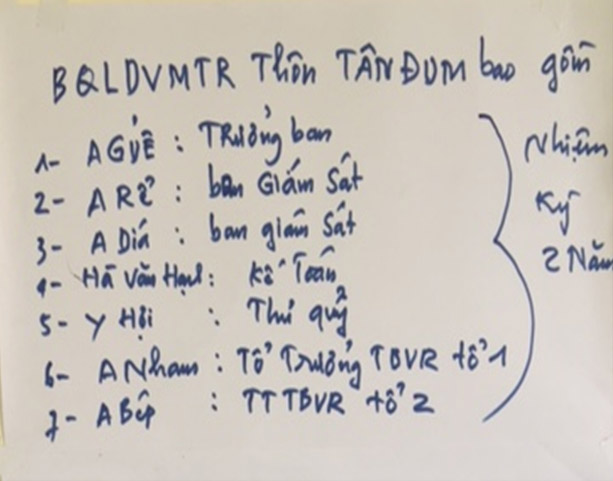 BQLDVMTR Thôn TÂN ĐUM bao gồm
1- A GUÊ : TRưởng ban
2- A RẺ : ban Giám Sát
3- A Diá : ban giám Sát
4- Hà Văn : Kế Toán
5- Y Hội : Thủ quỹ
6- A Nham : Tổ Trưởng TBVR tổ 1
7- A Bêp : TT TBVR tổ 2
Nhiệm
Kỳ
2 Năm